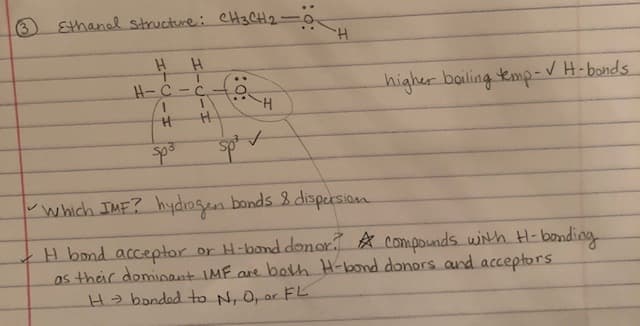 ③ Ethanol structure: CH3CH2-Ö-H
H H
H-C-C-Ö-H
H H
higher boiling temp-✓ H-bonds
sp³ sp³ ✓
✓ Which IMF? hydrogen bonds & dispersion
✓ H bond acceptor or H-bond donor? ☆ compounds with H-bonding
as their dominant IMF are both H-bond donors and acceptors
H → bonded to N, O, or FL